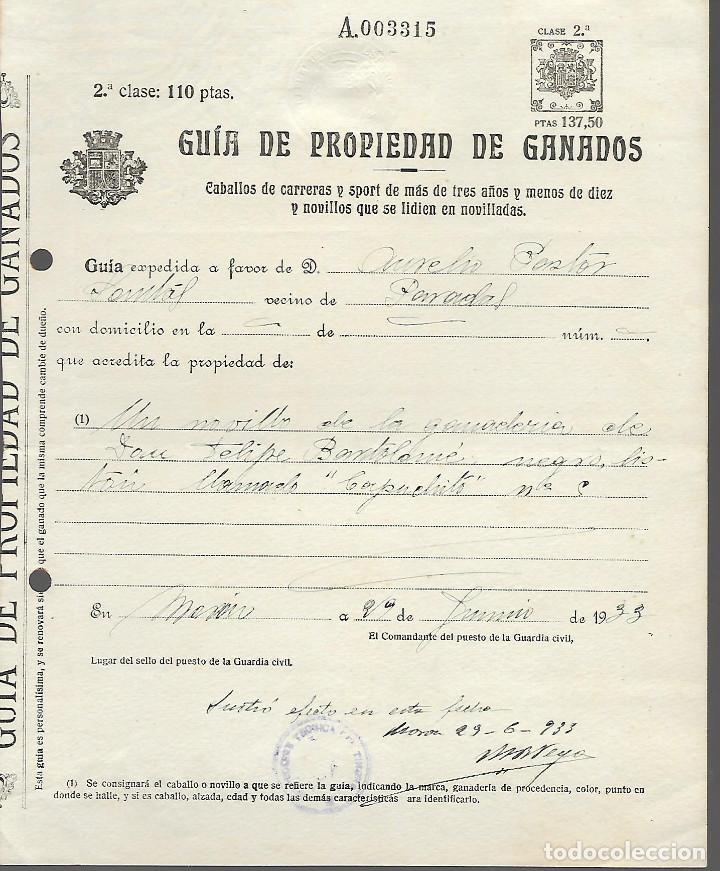 A.003315
CLASE 2.ª
PTAS 137,50
2.ª clase: 110 ptas.
GUÍA DE PROPIEDAD DE GANADOS
Caballos de carreras y sport de más de tres años y menos de diez
y novillos que se lidien en novilladas.
Guía expedida a favor de D. Aurelio Pastor
vecino de Paradas
con domicilio en la de núm.
que acredita la propiedad de:
(1) Un novillo de la ganaderia de
Don Felipe Bartolomé, negro, lis-
tón llamado "Capuchito" nº
En Morón a 29 de Junio de 1933
El Comandante del puesto de la Guardia civil,
Lugar del sello del puesto de la Guardia civil.
Surtió efecto en esta fecha
Moron 29-6-933
(1) Se consignará el caballo o novillo a que se refiere la guía, indicando la marca, ganadería de procedencia, color, punto en
donde se halle, y si es caballo, alzada, edad y todas las demás características ara identificarlo.
GUÍA DE PROPIEDAD DE GANADOS
Esta guía es personalísima, y se renovará que el ganado que la misma comprende cambie de dueño.
todocoleccion.net